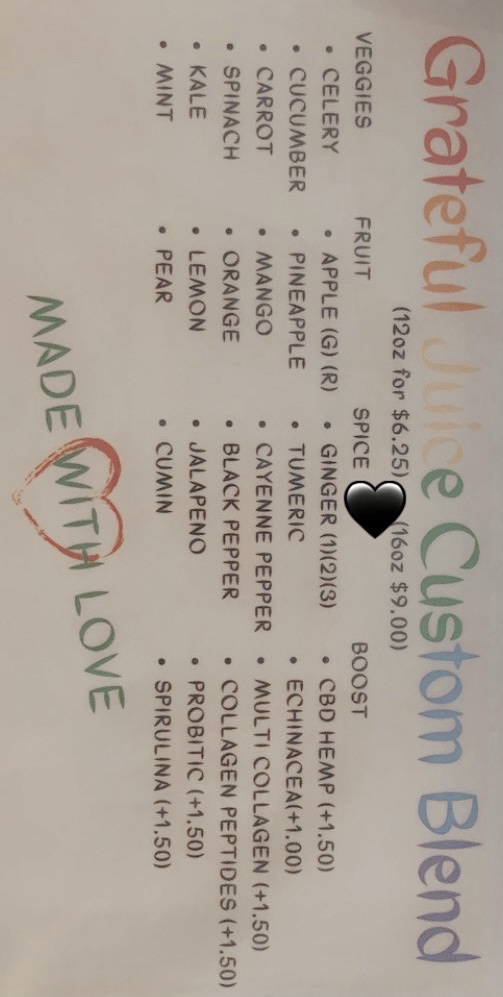 Grateful Juice Custom Blend
(12oz for $6.25) (16oz $9.00)
VEGGIES FRUIT SPICE BOOST
• CELERY • APPLE (G) (R) • GINGER (1)(2)(3) • CBD HEMP (+1.50)
• CUCUMBER • PINEAPPLE • TUMERIC • ECHINACEA(+1.00)
• CARROT • MANGO • CAYENNE PEPPER • MULTI COLLAGEN (+1.50)
• SPINACH • ORANGE • BLACK PEPPER • COLLAGEN PEPTIDES (+1.50)
• KALE • LEMON • JALAPENO • PROBITIC (+1.50)
• MINT • PEAR • CUMIN • SPIRULINA (+1.50)
MADE WITH LOVE